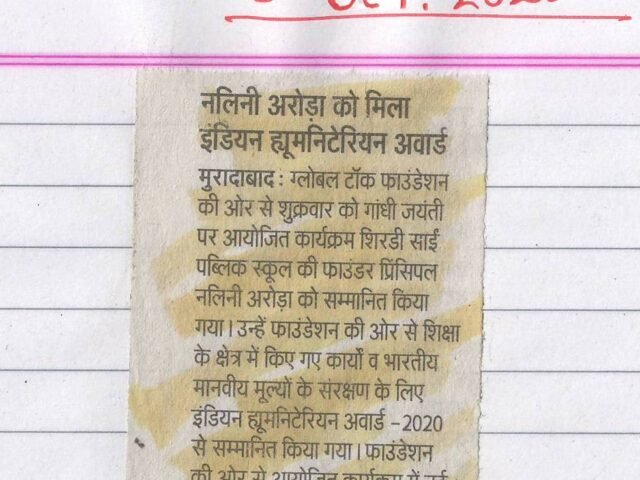 Oct. 2020
नलिनी अरोड़ा को मिला
इंडियन ह्यूमनिटेरियन अवार्ड
मुरादाबाद : ग्लोबल टॉक फाउंडेशन
की ओर से शुक्रवार को गांधी जयंती
पर आयोजित कार्यक्रम शिरडी साईं
पब्लिक स्कूल की फाउंडर प्रिंसिपल
नलिनी अरोड़ा को सम्मानित किया
गया। उन्हें फाउंडेशन की ओर से शिक्षा
के क्षेत्र में किए गए कार्यों व भारतीय
मानवीय मूल्यों के संरक्षण के लिए
इंडियन ह्यूमनिटेरियन अवार्ड -2020
से सम्मानित किया गया। फाउंडेशन
की ओर से आयोजित कार्यक्रम में